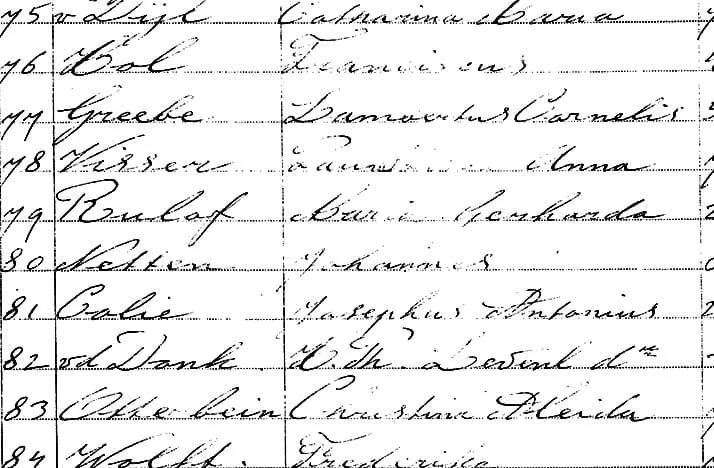 75 v Dijl Catharina Maria
76 Kol Franciscus
77 Greebe Lambertus Cornelis
78 Visser Anna
79 Rulof Maria Gerharda
80 Netten Johannes
81 Colie Josephus Antonius
82 vd Donk. H. Th.
83 Otterbein Christina Aleida
84 Wolff. Frederika